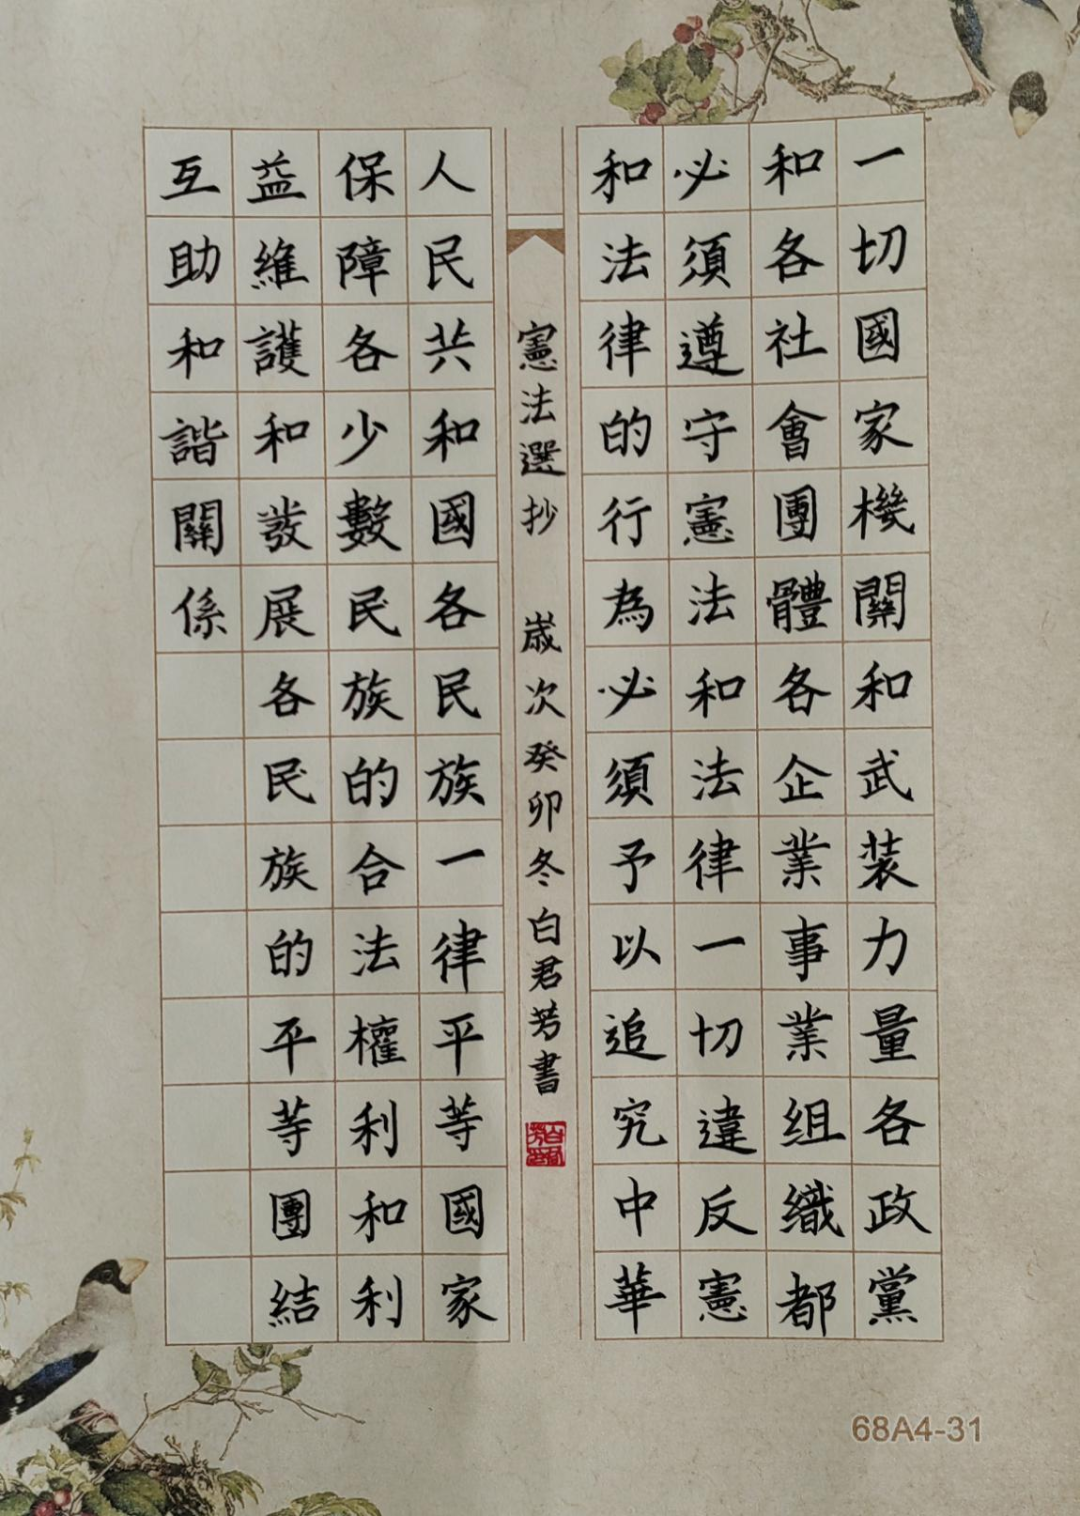 一切國家機關和武装力量各政黨
和各社會團體各企業事業组織都
必須遵守憲法和法律一切違反憲
和法律的行為必須予以追究中華
憲法選抄 嵗次癸卯冬白君芳書
人民共和國各民族一律平等國家
保障各少數民族的合法權利和利
益維護和發展各民族的平等團結
互助和諧關係
68A4-31